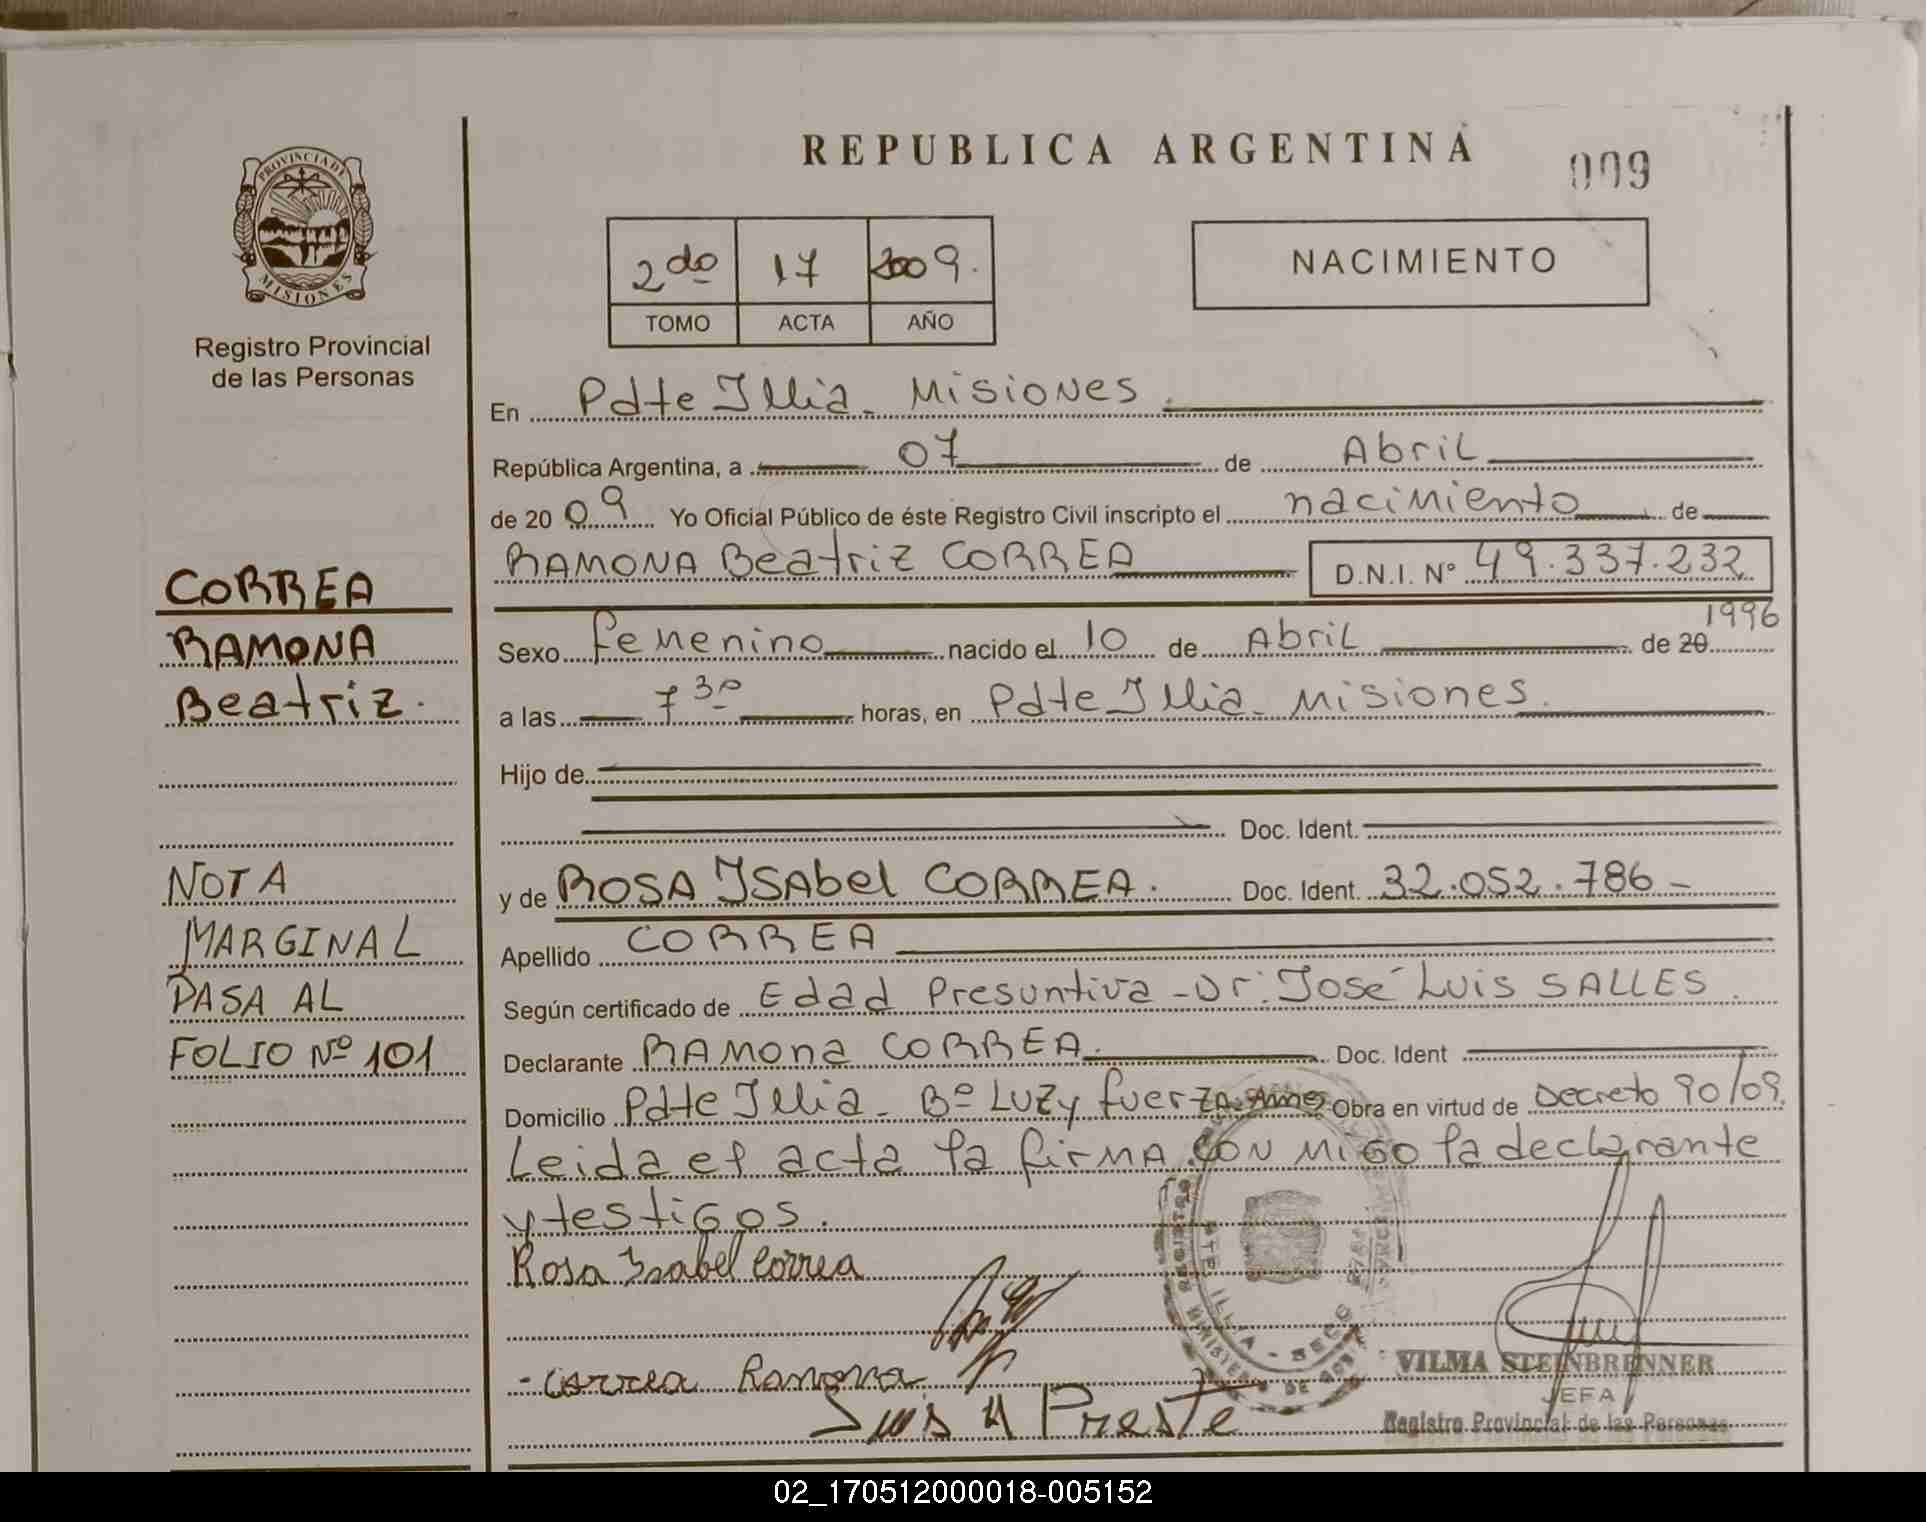 REPUBLICA ARGENTINA
009
PROVINCIA DE
MISIONES
Registro Provincial
de las Personas
2do 17 2009.
TOMO ACTA AÑO
NACIMIENTO
En Pdte Illia - Misiones
República Argentina, a 07 de Abril
de 20 09 Yo Oficial Público de éste Registro Civil inscripto el nacimiento de
RAMONA Beatriz CORREA D.N.I. Nº 49.337.232
CORREA
RAMONA
Beatriz.
1996
Sexo femenino nacido el 10 de Abril de 20
a las 7 30 horas, en Pdte Illia - Misiones.
Hijo de
Doc. Ident.
y de ROSA ISAbel CORREA. Doc. Ident. 32.052.786 -
Apellido CORREA
Según certificado de Edad Presuntiva - Dr. José Luis SALLES.
Declarante RAMONA CORREA. Doc. Ident
Domicilio Pdte Illia - Bº LUZ y fuerza Obra en virtud de Decreto 90/09.
Leida el acta la firma con migo la declarante
y testigos.
NOTA
MARGINAL
PASA AL
FOLIO Nº 101
Rosa Isabel Correa
- Correa Ramona
Luis A Preste
VILMA STEINBRENNER
JEFA
Registro Provincial de las Personas
02_170512000018-005152